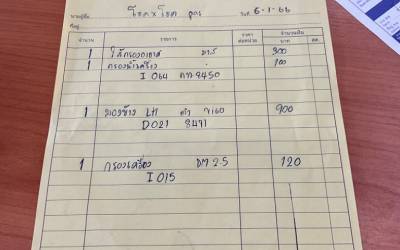 นามผู้ซื้อ โชคxโชค วันที่ 6-1-66
ที่อยู่
จำนวน รายการ ราคา ต่อหน่วย จำนวนเงิน บาท สต.
1 ไส้กรองอากาศ 300
1 กรองน้ำมันเครื่อง 100
I 064 8450
1 มองข้าง LH ดำ 900
D021 8471
1 กรองเครื่อง DM 2.5 120
I 015